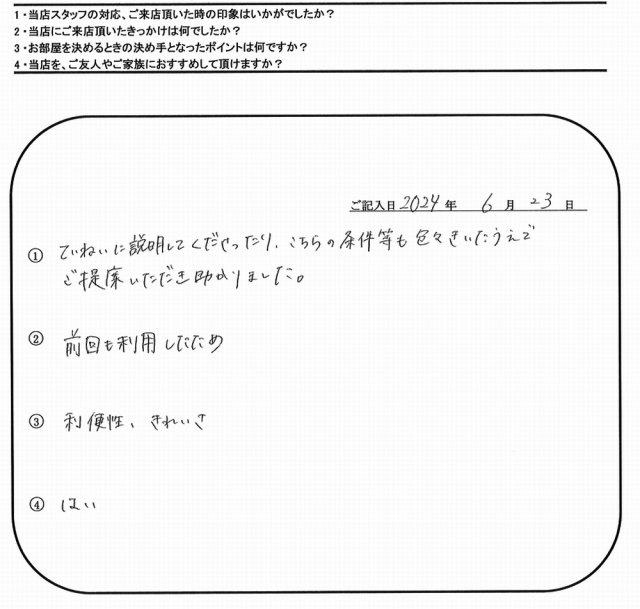 1・当店スタッフの対応、ご来店頂いた時の印象はいかがでしたか？
2・当店にご来店頂いたきっかけは何でしたか？
3・お部屋を決めるときの決め手となったポイントは何ですか？
4・当店を、ご友人やご家族におすすめして頂けますか？
ご記入日 2024 年 6 月 23 日
① ていねいに説明してくださったり、こちらの条件等も色々きいたうえで
ご提案いただき助かりました。
② 前回も利用したため
③ 利便性、きれいさ
④ はい